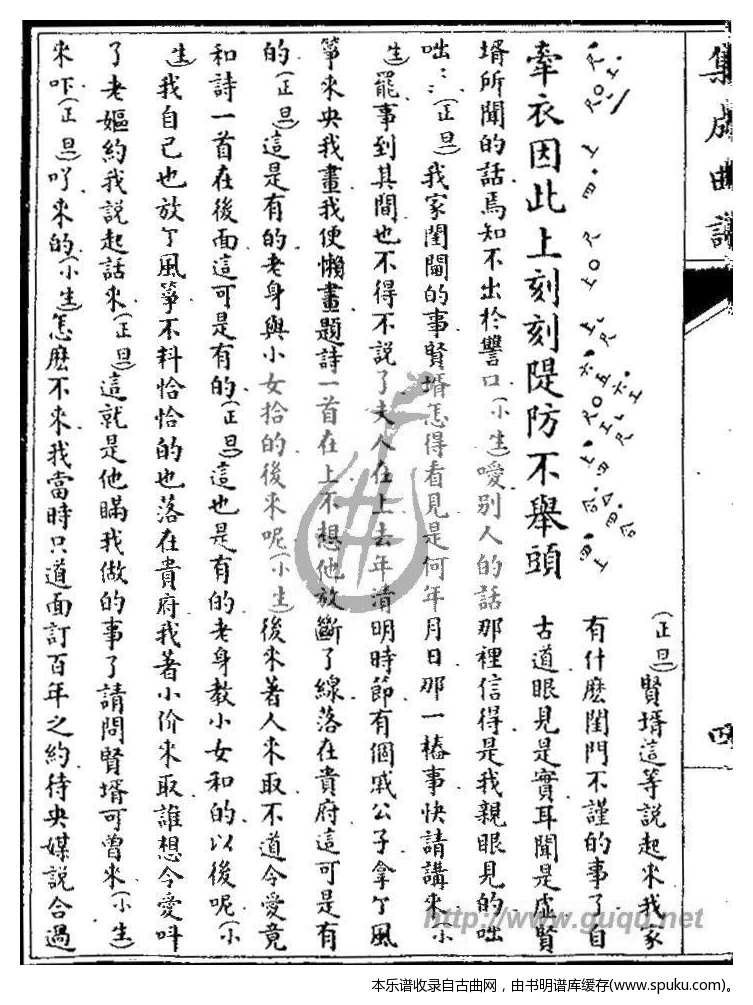 集成曲譜
四
(正旦)賢壻這等説起來我家
有什麽閨門不謹的事了自
牽衣因此上刻刻隄防不舉頭
古道眼見是實耳聞是虛賢
壻所聞的話焉知不出於讐口(小生)噯別人的話那裡信得是我親眼見的咄
咄⋮(正旦)我家閨閫的事賢壻怎得看見是何年月日那一樁事快請講來(小
生)罷事到其間也不得不説了夫人在上去年清明時節有個戚公子拿了風
箏來央我畫我便懶畫題詩一首在上不想他放斷了線落在貴府這可是有
的(正旦)這是有的老身與小女拾的後來呢(小生)後來著人來取不道令愛竟
和詩一首在後面這可是有的(正旦)這也是有的老身教小女和的以後呢(小
生)我自己也放了風箏不料恰恰的也落在貴府我著小价來取誰想令愛呌
了老嫗約我説起話來(正旦)這就是他瞞我做的事了請問賢壻可曾來(小生)
來吓(正旦)吖來的(小生)怎麽不來我當時只道面訂百年之約待央媒説合過
http://www.guqu.net
本乐谱收录自古曲网，由书明谱库缓存(www.spuku.com)。